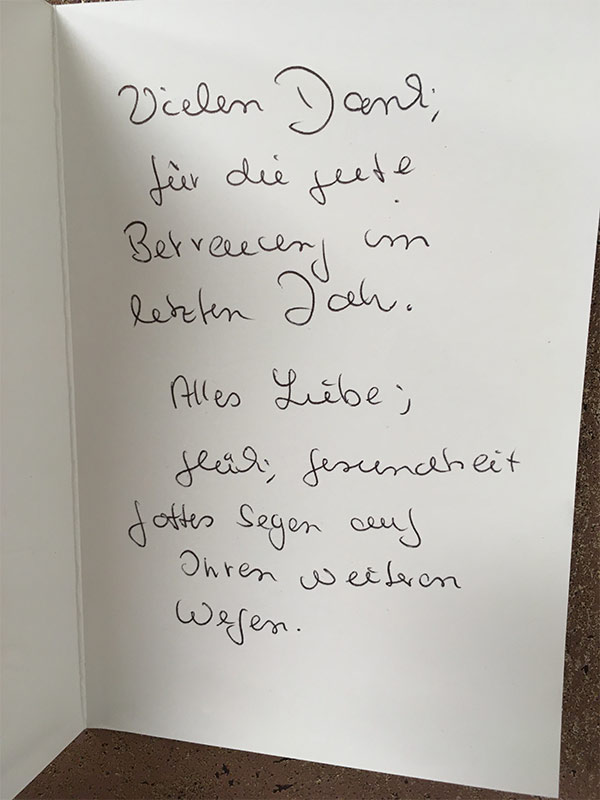 Vielen Dank,
für die gute
Betreuung im
letzten Jahr.
Alles Liebe,
Glück, Gesundheit
Gottes Segen auf
Ihren weiteren
Wegen.